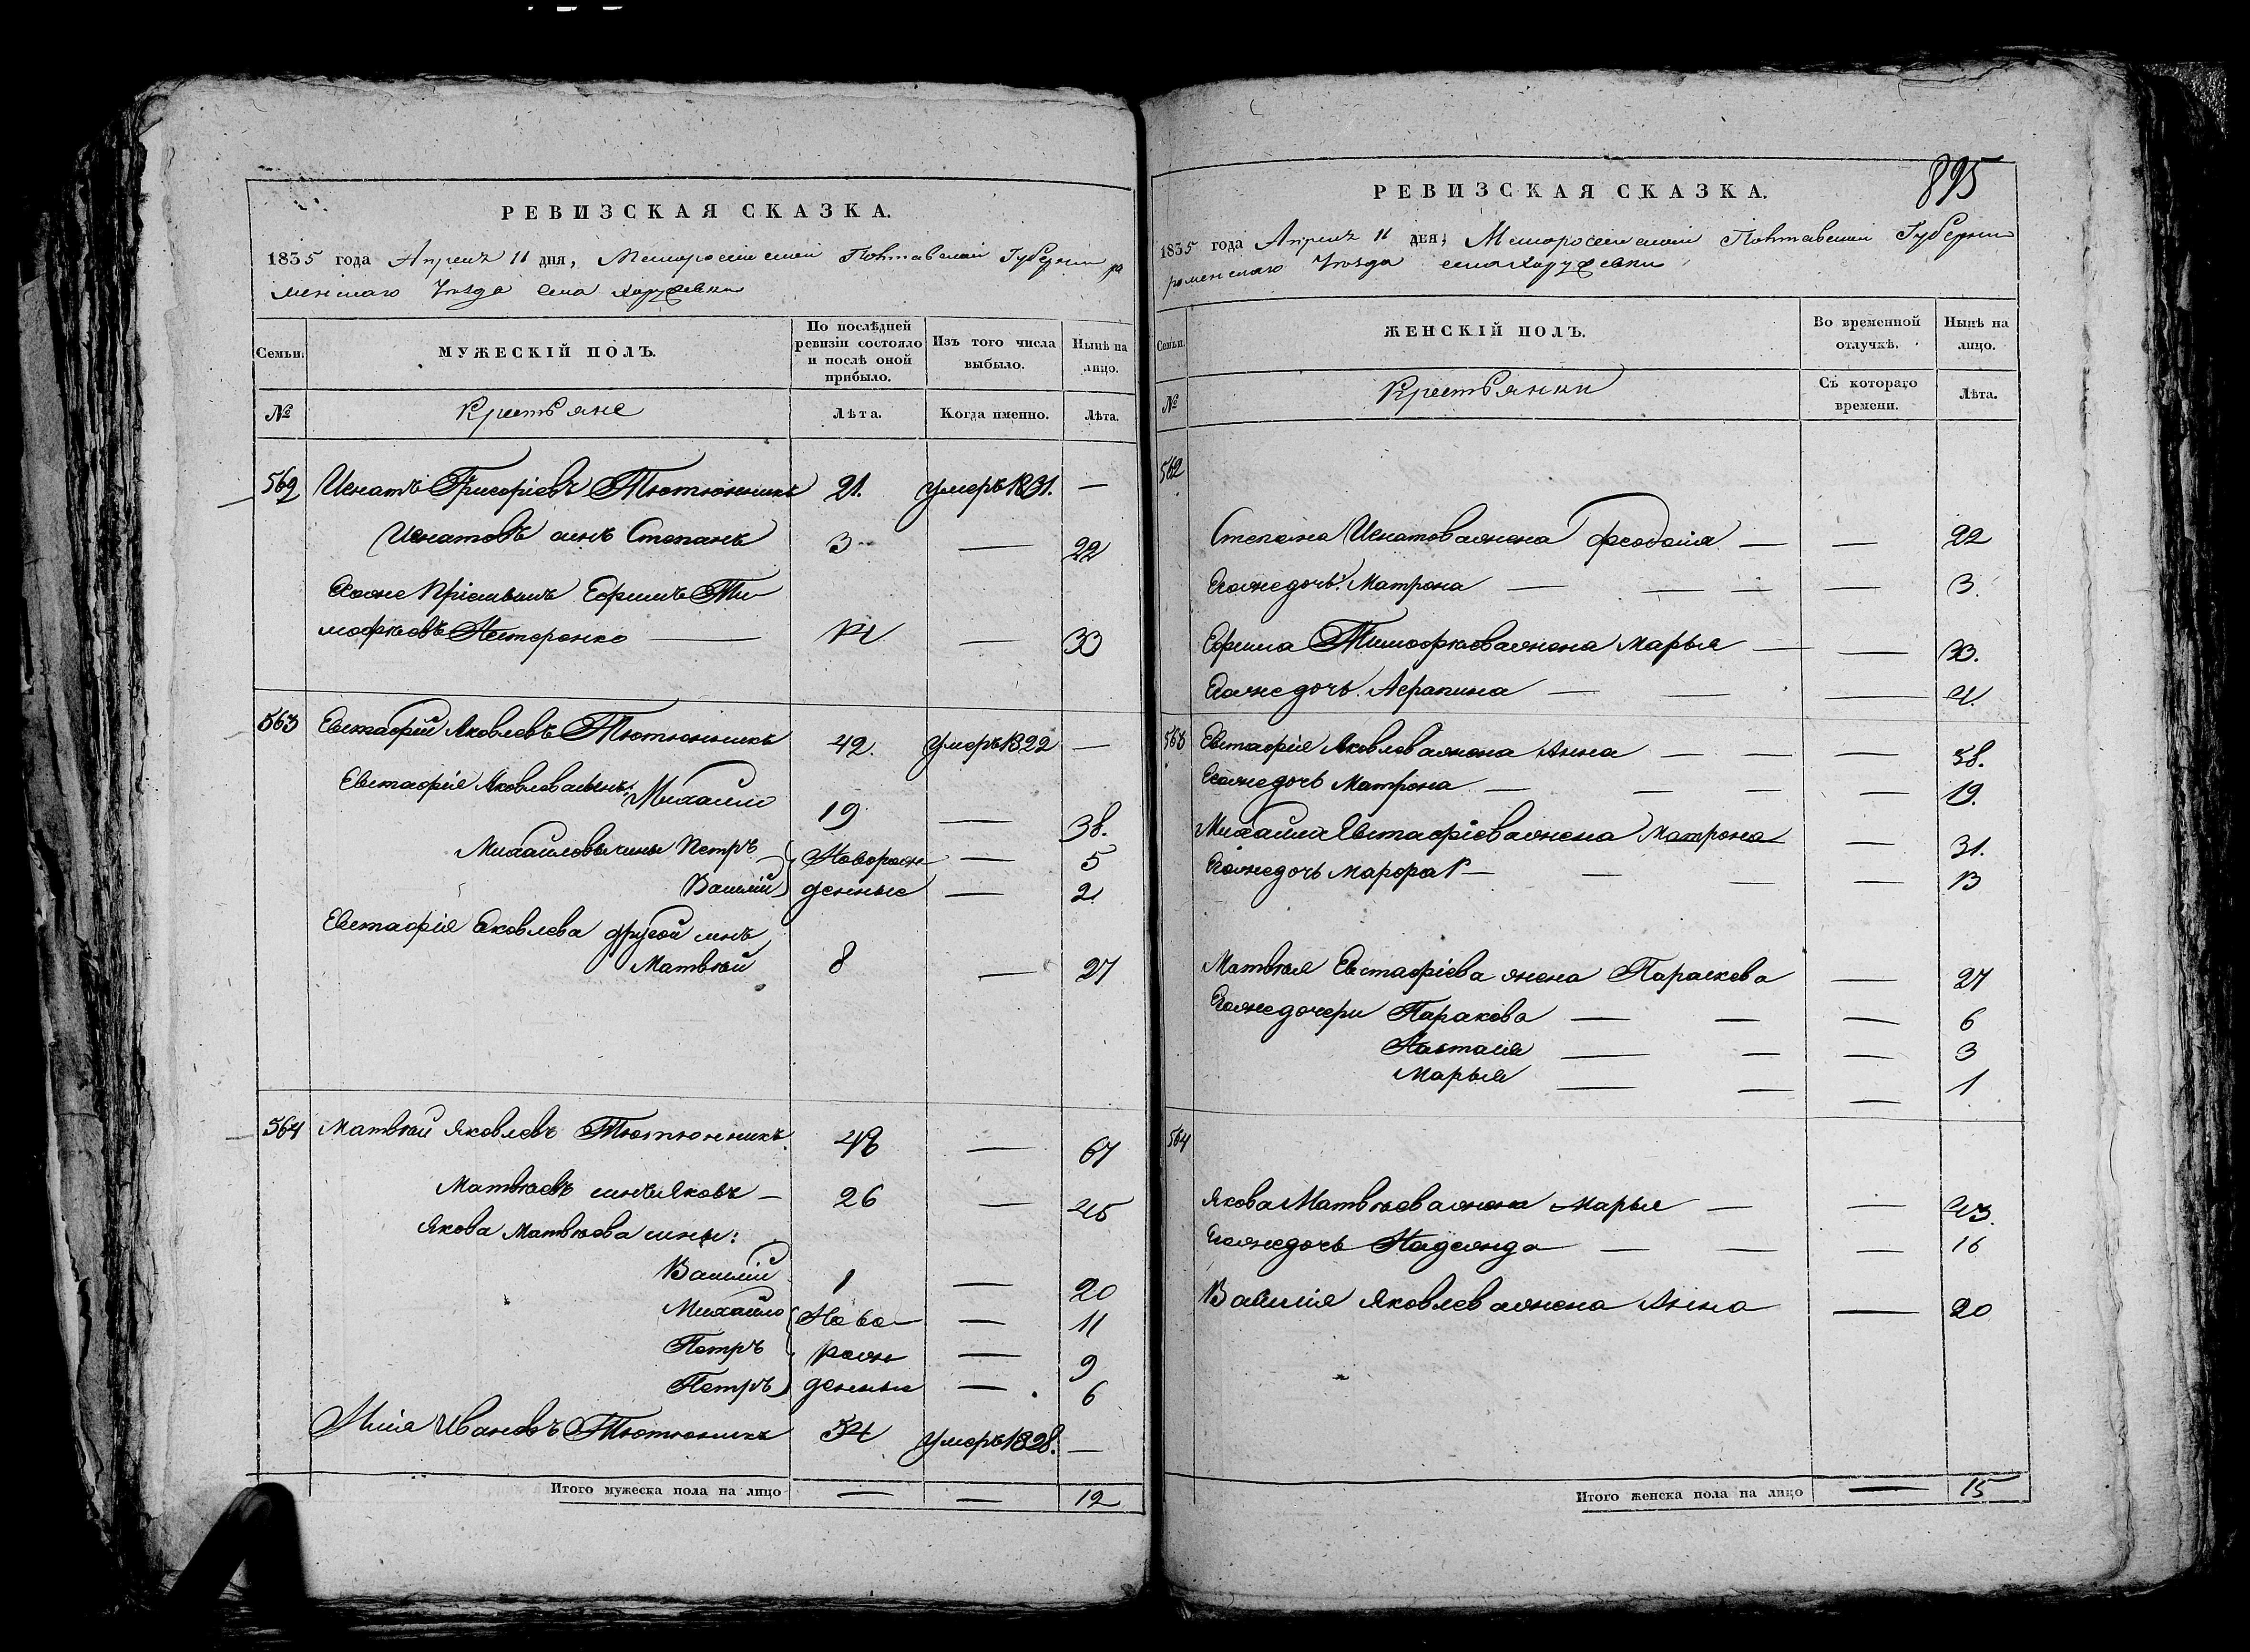 РЕВИЗСКАЯ СКАЗКА.
1835 года Апреля 11 дня, Малороссийской Полтавской Губернии ро
менскаго Уѣзда села Харуфевки
Семьи.
МУЖЕСКІЙ ПОЛЪ.
По послѣдней ревизіи состояло и послѣ оной прибыло.
Изъ того числа выбыло.
Нынѣ на лицо.
№
Крестьяне
Лѣта.
Когда именно.
Лѣта.
562 Игнатъ Григоріевъ Тютюнникъ 21. умеръ 1831. —
Игнатовъ сынъ Степанъ 3 — 22
Егоже Пріемышъ Ефимъ Ти
мофѣевъ Нестеренко — 14 — 33
563 Евстафій Яковлевъ Тютюнникъ 42. умеръ 1822 —
Евстафія Яковлева сынъ: Михайло 19 — 38.
Михайловы сыны Петръ Новорож — 5
Василій денные — 2
Евстафія Яковлева другой сынъ
Матвѣй 8 — 27
564 Матвѣй Яковлевъ Тютюнникъ. 48 — 67
Матвѣевъ сынъ Яковъ — 26 — 45
Якова Матвѣева сыны:
Василій 1 — 20
Михайло Ново — 11
Петръ рож — 9
Петръ денные — 6
Ивановъ Тютюникъ 54 умеръ 1828. —
Итого мужеска пола на лицо — — 12
895
РЕВИЗСКАЯ СКАЗКА.
1835 года Апреля 11 дня, Малороссийской Полтавской Губернии
роменскаго Уѣзда села Харуфевки
Семьи.
ЖЕНСКІЙ ПОЛЪ.
Во временной отлучкѣ.
Нынѣ на лицо.
№
Крестьянки
Съ котораго времени.
Лѣта.
562
Степана Игнатова жена Феодосія — — 22
Егоже дочь: Матрона — — — — 3.
Ефима Тимофѣева жена Марья — — 33.
Егоже дочь. Агрипина — — — 4.
563 Евстафія Яковлева жена Анна — — — 58.
Егоже дочь Матрона — — — — 19.
Михайла Евстафіева жена Матрона — 31.
Егоже дочь Марфа — — — — 13
Матвѣя Евстафіева жена Параскева — 27
Егоже дочери Параскева — — — 6
Настасія — — — 3
Марья — — — 1
564
Якова Матвѣева жена Марья — — 43.
Егоже дочь Надежда — — — 16
Василія Яковлева жена Анна — 20
Итого женска пола на лицо — 15